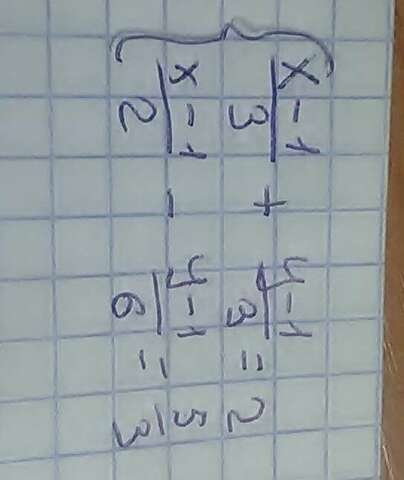 { (x-1)/3 + (y-1)/3 = 2
(x-1)/2 - (y-1)/6 = 5/3